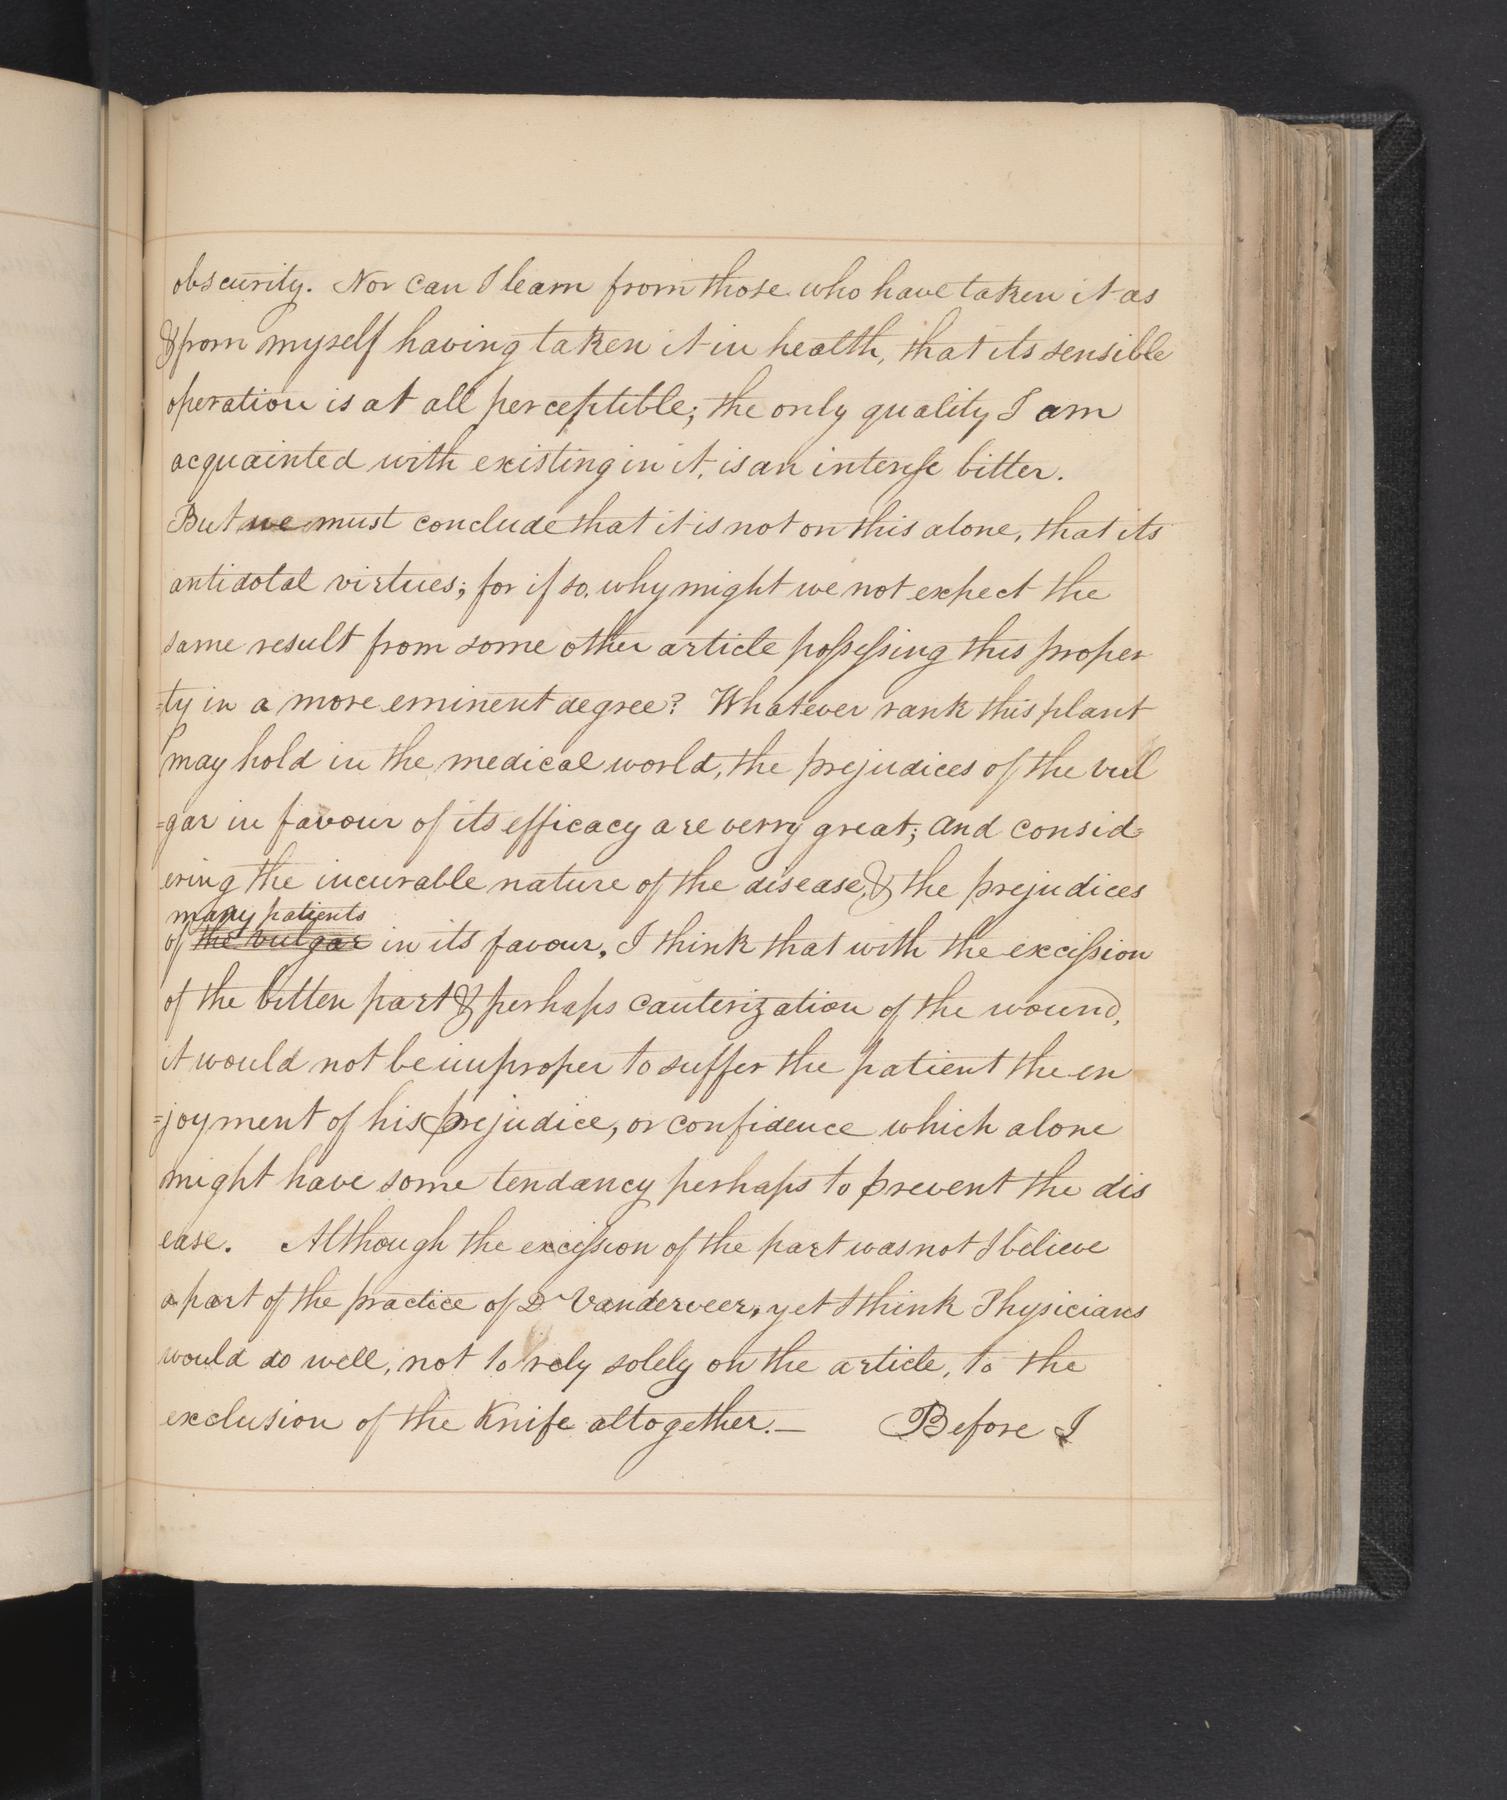 obscurity. Nor can I learn from those who have taken it as
& from myself having taken it in health, that its sensible
operation is at all perceptible; the only quality I am
acquainted with existing in it, is an intense bitter.
But we must conclude that it is not on this alone, that its
antidotal virtues; for if so, why might we not expect the
same result from some other article possessing this proper
=ty in a more eminent degree? Whatever rank this plant
may hold in the medical world, the prejudices of the vul
=gar in favour of its efficacy are verry great; and consid=
ering the incurable nature of the disease, & the prejudices
many patients
of the vulgar in its favour, I think that with the excission
of the bitten part & perhaps cauterization of the wound,
it would not be improper to suffer the patient the en
=joyment of his prejudice, or confidence which alone
might have some tendancy perhaps to prevent the dis
ease. Although the excission of the part was not I believe
a part of the practice of Dr Vanderveer, yet I think Physicians
would do well, not to rely solely on the article, to the
exclusion of the Knife altogether.— Before I